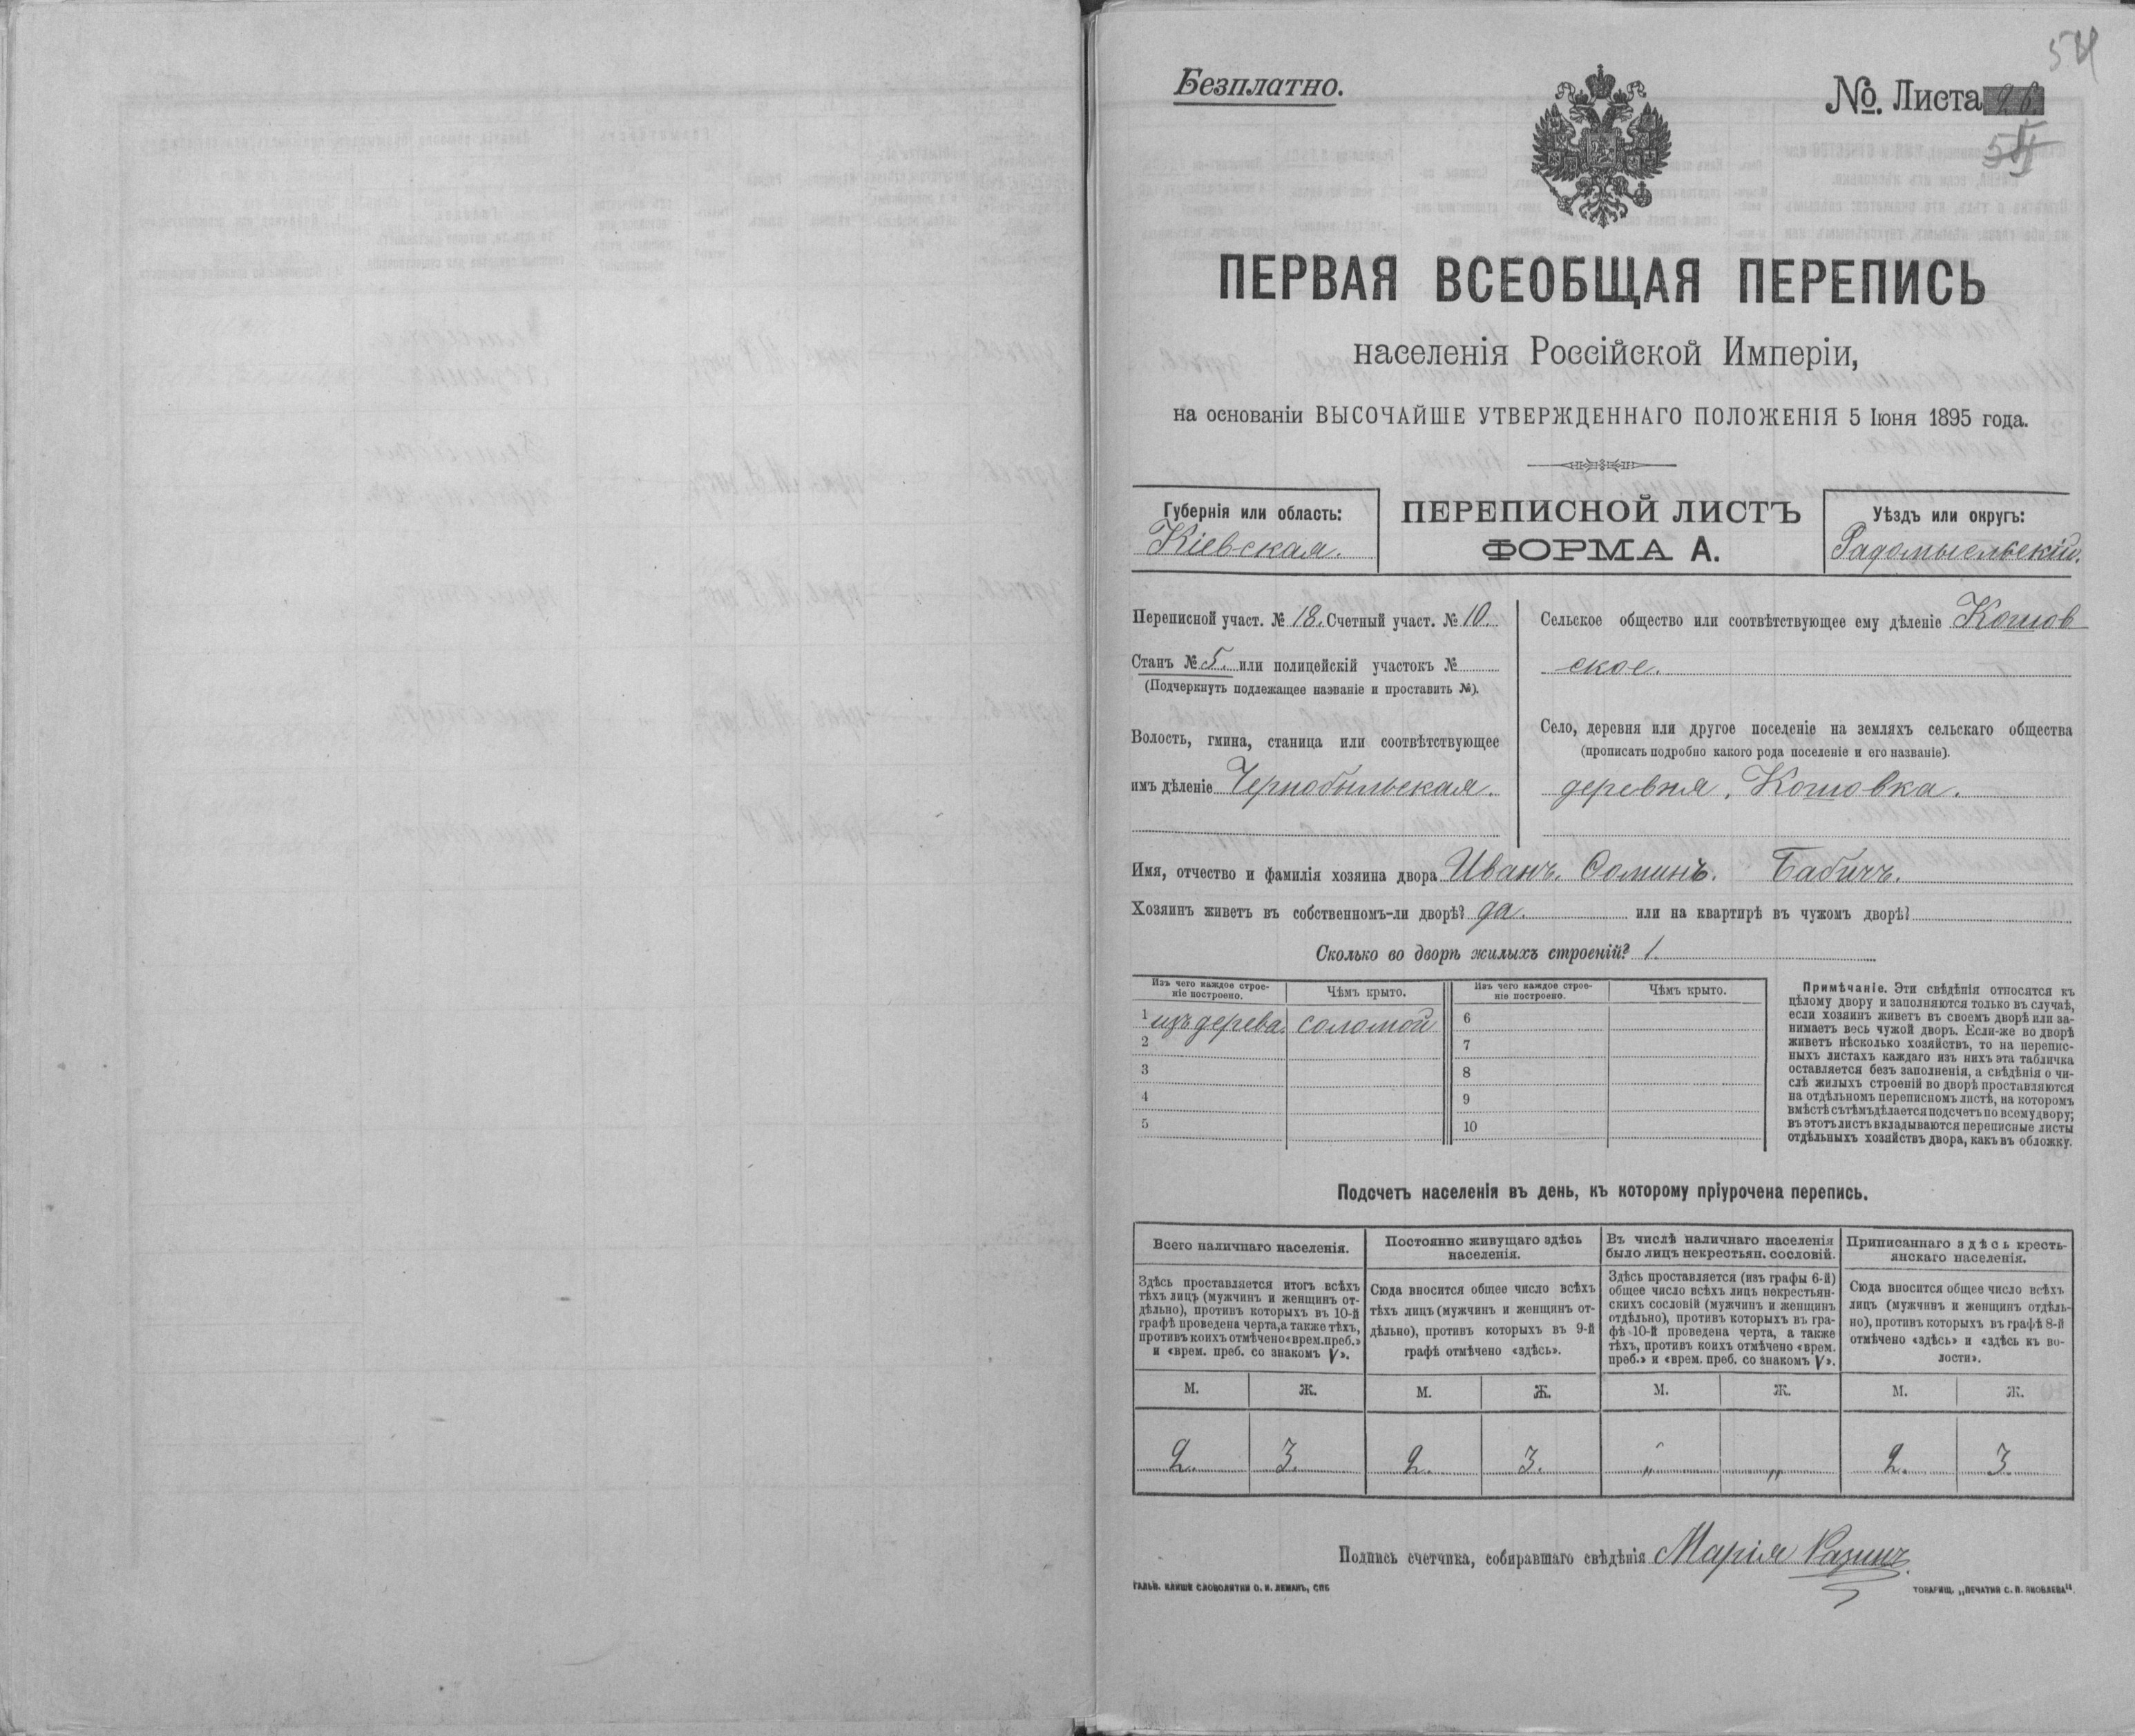 54
Безплатно.
№. Листа 28.
54
ПЕРВАЯ ВСЕОБЩАЯ ПЕРЕПИСЬ
населенія Россійской Имперіи,
на основаніи ВЫСОЧАЙШЕ УТВЕРЖДЕННАГО ПОЛОЖЕНІЯ 5 Іюня 1895 года.
Губернія или область:
Кіевская.
ПЕРЕПИСНОЙ ЛИСТЪ
ФОРМА А.
Уѣздъ или округъ:
Радомысльскій.
Переписной участ. № 18. Счетный участ. № 10.
Станъ № 5. или полицейскій участокъ №
(Подчеркнуть подлежащее названіе и проставить №).
Волость, гмина, станица или соотвѣтствующее
имъ дѣленіе Чернобыльская.
Сельское общество или соотвѣтствующее ему дѣленіе Кошов
ское.
Село, деревня или другое поселеніе на земляхъ сельскаго общества
(прописать подробно какого рода поселеніе и его названіе).
деревня, Кошовка.
Имя, отчество и фамилія хозяина двора Иванъ. Ѳоминъ. Бабичъ.
Хозяинъ живетъ въ собственномъ-ли дворѣ? да. или на квартирѣ въ чужомъ дворѣ?
Сколько во дворѣ жилыхъ строеній? 1.
Изъ чего каждое строе-
ніе построено.
Чѣмъ крыто.
Изъ чего каждое строе-
ніе построено.
Чѣмъ крыто.
1 изъ дерева. соломой 6
2 7
3 8
4 9
5 10
Примѣчаніе. Эти свѣдѣнія относятся къ
цѣлому двору и заполняются только въ случаѣ,
если хозяинъ живетъ въ своемъ дворѣ или за-
нимаетъ весь чужой дворъ. Если-же во дворѣ
живетъ нѣсколько хозяйствъ, то на перепис-
ныхъ листахъ каждаго изъ нихъ эта табличка
оставляется безъ заполненія, а свѣдѣнія о чи-
слѣ жилыхъ строеній во дворѣ проставляются
на отдѣльномъ переписномъ листѣ, на которомъ
вмѣстѣ съ тѣмъ дѣлается подсчетъ по всему двору;
въ этотъ листъ вкладываются переписные листы
отдѣльныхъ хозяйствъ двора, какъ въ обложку.
Подсчетъ населенія въ день, къ которому пріурочена перепись.
Всего наличнаго населенія.
Здѣсь проставляется итогъ всѣхъ
тѣхъ лицъ (мужчинъ и женщинъ от-
дѣльно), противъ которыхъ въ 10-й
графѣ проведена черта, а также тѣхъ,
противъ коихъ отмѣчено «врем. преб.»
и «врем. преб. со знакомъ V».
Постоянно живущаго здѣсь
населенія.
Сюда вносится общее число всѣхъ
тѣхъ лицъ (мужчинъ и женщинъ от-
дѣльно), противъ которыхъ въ 9-й
графѣ отмѣчено «здѣсь».
Въ числѣ наличнаго населенія
было лицъ некрестьян. сословій.
Здѣсь проставляется (изъ графы 6-й)
общее число всѣхъ лицъ некрестьян-
скихъ сословій (мужчинъ и женщинъ
отдѣльно), противъ которыхъ въ гра-
фѣ 10-й проведена черта, а также
тѣхъ, противъ коихъ отмѣчено «врем.
преб.» и «врем. преб. со знакомъ V».
Приписаннаго здѣсь кресть-
янскаго населенія.
Сюда вносится общее число всѣхъ
лицъ (мужчинъ и женщинъ отдѣль-
но), противъ которыхъ въ графѣ 8-й
отмѣчено «здѣсь» и «здѣсь къ во-
лости».
М. Ж. М. Ж. М. Ж. М. Ж.
2. 3. 2. 3. „ „ 2. 3.
Подпись счетчика, собиравшаго свѣдѣнія Марія
ГАЛЬВ. КЛИШЕ СЛОВОЛИТНИ О. И. ЛЕМАНЪ, СПБ
ТОВАРИЩ. „ПЕЧАТНЯ С. П. ЯКОВЛЕВА“.